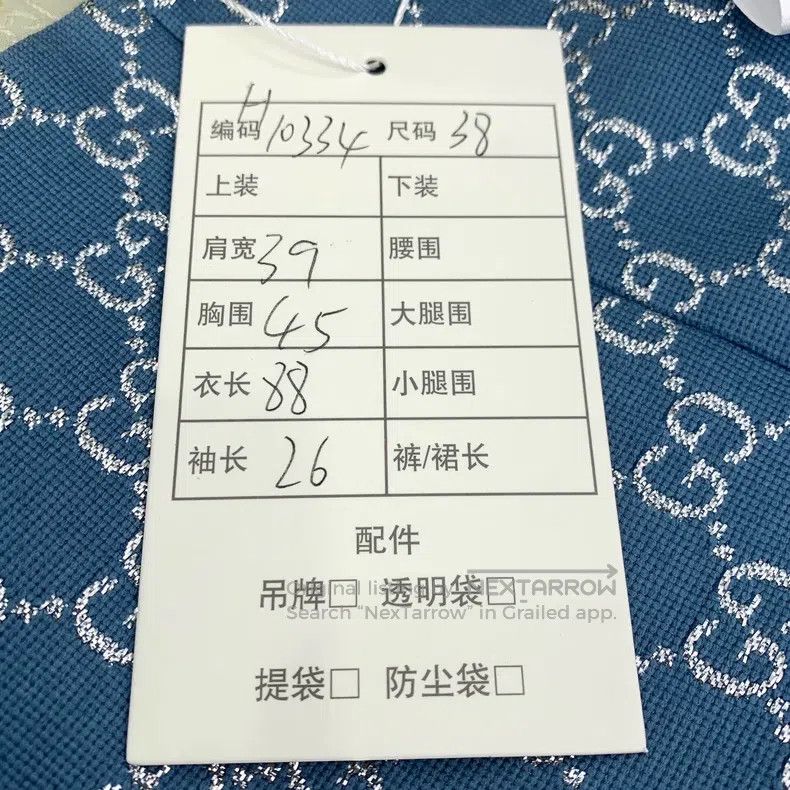 编码 H10334 尺码 38
上装 下装
肩宽 39 腰围
胸围 45 大腿围
衣长 88 小腿围
袖长 26 裤/裙长
配件
吊牌□ 透明袋□
Original listing by NEXTARROW
Search “NexTarrow” in Grailed app.
提袋□ 防尘袋□